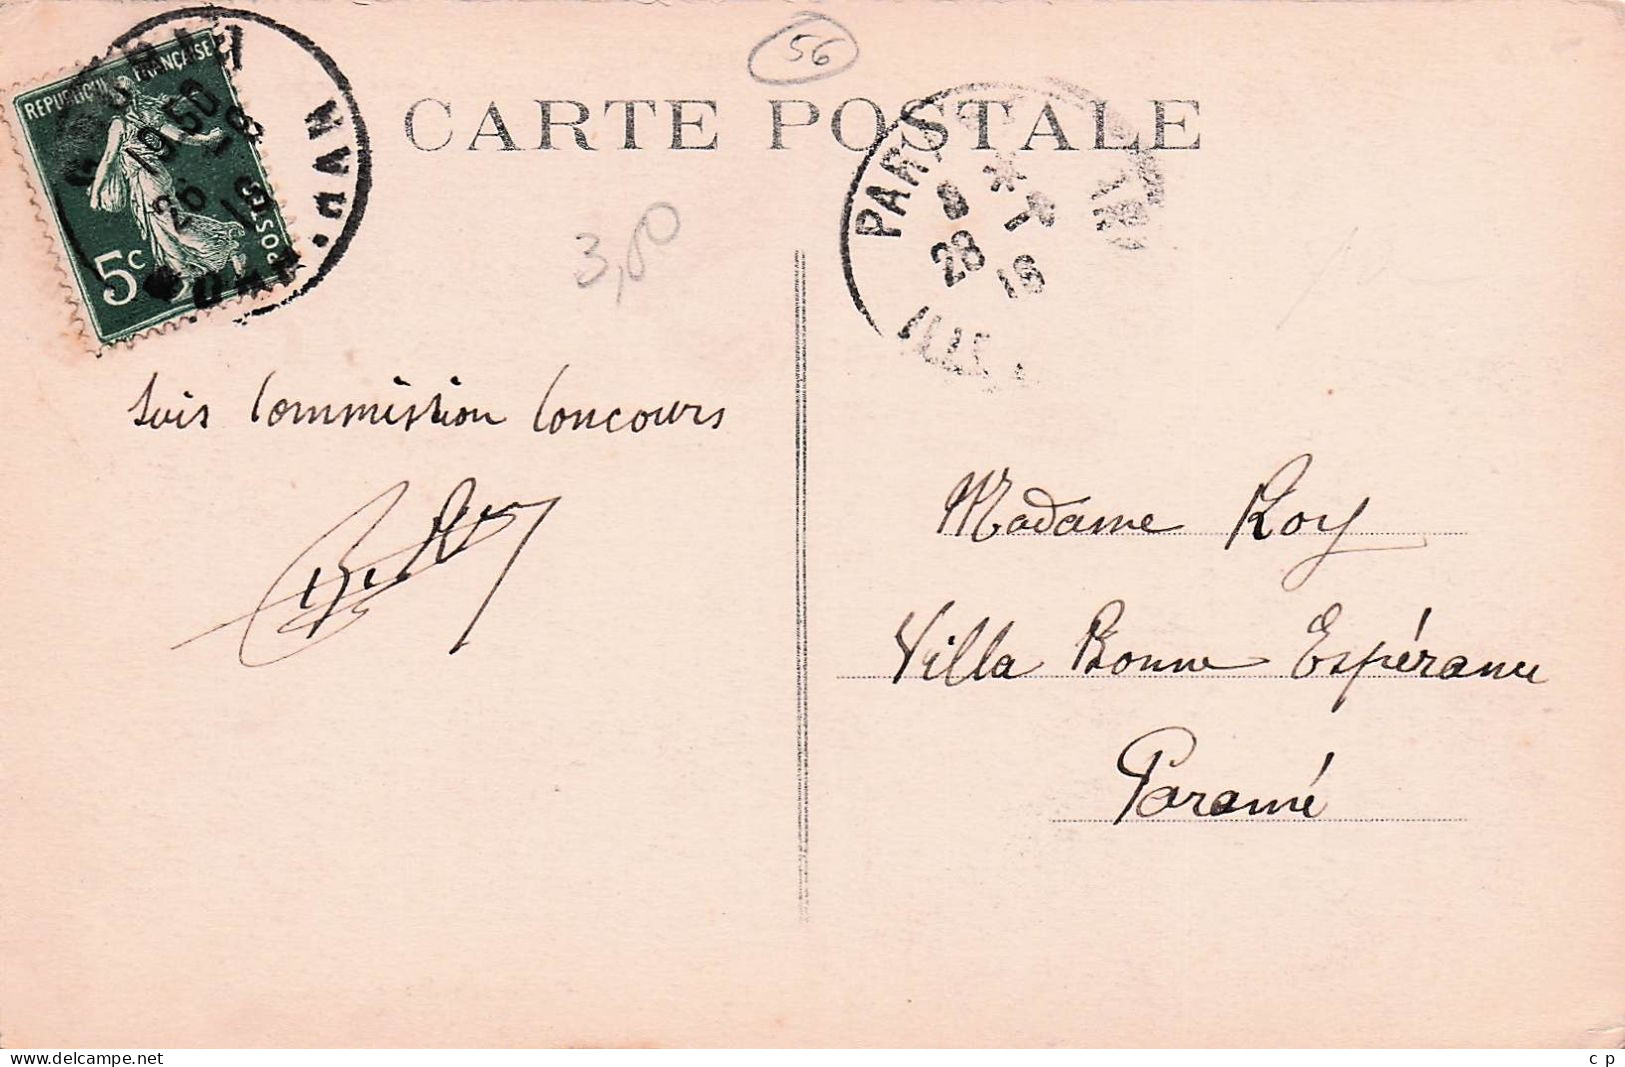 56
CARTE POSTALE
REPUBLIQUE FRANÇAISE
POSTES
5c
19 50
26
PARAMÉ
28 - 1
16
ILLE
3,00
Suis Commission Concours
Madame Roy
Villa Bonne Espérance
Paramé
www.delcampe.net
cp